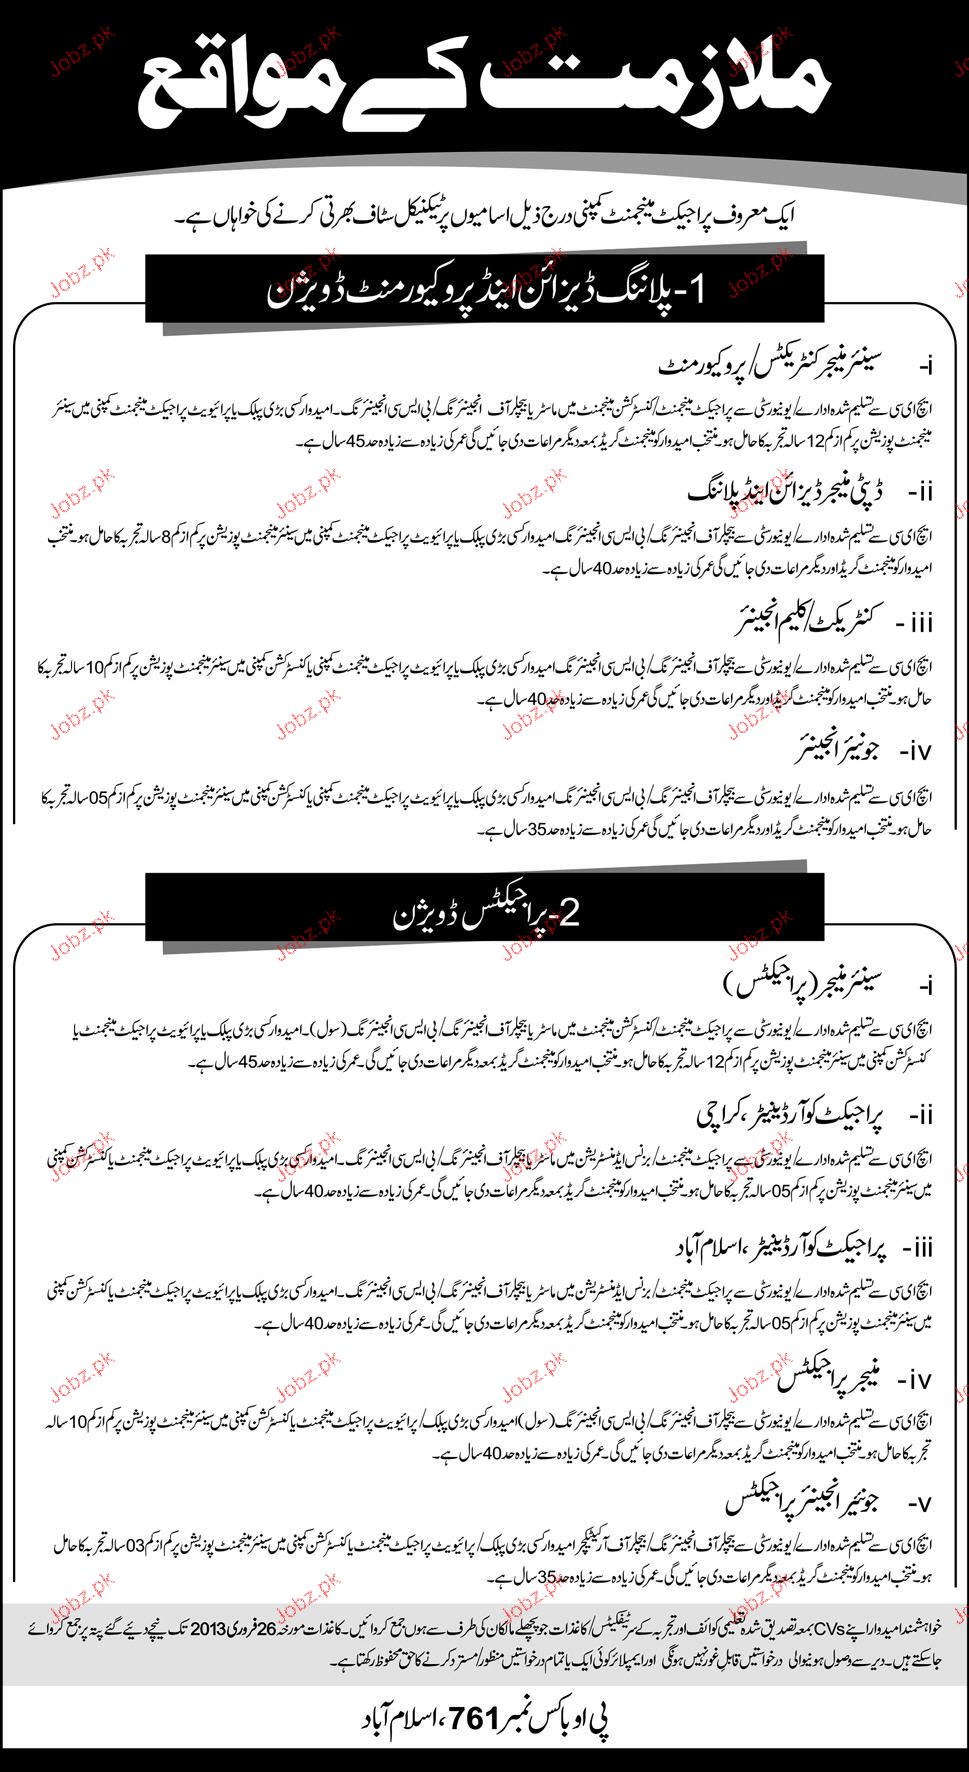 ملازمت کے مواقع
ایک معروف پراجیکٹ مینجمنٹ کمپنی درج ذیل اسامیوں پر ٹیکنیکل سٹاف بھرتی کرنے کی خواہاں ہے۔
1-پلاننگ ڈیزائن اینڈ پروکیورمنٹ ڈویژن
i- سینئر منیجر کنٹریکٹس/پروکیورمنٹ
ایچ ای سی سے تسلیم شدہ ادارے/یونیورسٹی سے پراجیکٹ مینجمنٹ/کنسٹرکشن مینجمنٹ میں ماسٹر یا بیچلر آف انجینئرنگ/بی ایس سی انجینئرنگ۔امیدوار کسی بڑی پبلک یا پرائیویٹ پراجیکٹ مینجمنٹ کمپنی میں سینئر
مینجمنٹ پوزیشن پر کم از کم 12 سالہ تجربہ کا حامل ہو۔منتخب امیدوار کو مینجمنٹ گریڈ بمعہ دیگر مراعات دی جائیں گی عمر کی زیادہ سے زیادہ حد 45 سال ہے۔
ii- ڈپٹی منیجر ڈیزائن اینڈ پلاننگ
ایچ ای سی سے تسلیم شدہ ادارے/یونیورسٹی سے بیچلر آف انجینئرنگ/بی ایس سی انجینئرنگ امیدوار کسی بڑی پبلک یا پرائیویٹ پراجیکٹ مینجمنٹ کمپنی میں سینئر مینجمنٹ پوزیشن پر کم از کم 8 سالہ تجربہ کا حامل ہو۔منتخب
امیدوار کو مینجمنٹ گریڈ اور دیگر مراعات دی جائیں گی عمر کی زیادہ سے زیادہ حد 40 سال ہے۔
iii- کنٹریکٹ/کلیم انجینئر
ایچ ای سی سے تسلیم شدہ ادارے/یونیورسٹی سے بیچلر آف انجینئرنگ/بی ایس سی انجینئرنگ امیدوار کسی بڑی پبلک یا پرائیویٹ پراجیکٹ مینجمنٹ کمپنی یا کنسٹرکشن کمپنی میں سینئر مینجمنٹ پوزیشن پر کم از کم 10 سالہ تجربہ کا
حامل ہو۔منتخب امیدوار کو مینجمنٹ گریڈ اور دیگر مراعات دی جائیں گی عمر کی زیادہ سے زیادہ حد 40 سال ہے۔
iv- جونیئر انجینئر
ایچ ای سی سے تسلیم شدہ ادارے/یونیورسٹی سے بیچلر آف انجینئرنگ/بی ایس سی انجینئرنگ امیدوار کسی بڑی پبلک یا پرائیویٹ پراجیکٹ مینجمنٹ کمپنی یا کنسٹرکشن کمپنی میں سینئر مینجمنٹ پوزیشن پر کم از کم 05 سالہ تجربہ کا
حامل ہو۔منتخب امیدوار کو مینجمنٹ گریڈ اور دیگر مراعات دی جائیں گی عمر کی زیادہ سے زیادہ حد 35 سال ہے۔
2-پراجیکٹس ڈویژن
i- سینئر منیجر (پراجیکٹس)
ایچ ای سی سے تسلیم شدہ ادارے/یونیورسٹی سے پراجیکٹ مینجمنٹ/کنسٹرکشن مینجمنٹ میں ماسٹر یا بیچلر آف انجینئرنگ/بی ایس سی انجینئرنگ (سول)۔امیدوار کسی بڑی پبلک یا پرائیویٹ پراجیکٹ مینجمنٹ یا
کنسٹرکشن کمپنی میں سینئر مینجمنٹ پوزیشن پر کم از کم 12 سالہ تجربہ کا حامل ہو۔منتخب امیدوار کو مینجمنٹ گریڈ بمعہ دیگر مراعات دی جائیں گی۔عمر کی زیادہ سے زیادہ حد 45 سال ہے۔
ii- پراجیکٹ کوآرڈینیٹر، کراچی
ایچ ای سی سے تسلیم شدہ ادارے/یونیورسٹی سے پراجیکٹ مینجمنٹ/بزنس ایڈمنسٹریشن میں ماسٹر یا بیچلر آف انجینئرنگ/بی ایس سی انجینئرنگ۔امیدوار کسی بڑی پبلک یا پرائیویٹ پراجیکٹ مینجمنٹ یا کنسٹرکشن کمپنی
میں سینئر مینجمنٹ پوزیشن پر کم از کم 05 سالہ تجربہ کا حامل ہو۔منتخب امیدوار کو مینجمنٹ گریڈ بمعہ دیگر مراعات دی جائیں گی۔عمر کی زیادہ سے زیادہ حد 40 سال ہے۔
iii- پراجیکٹ کوآرڈینیٹر، اسلام آباد
ایچ ای سی سے تسلیم شدہ ادارے/یونیورسٹی سے پراجیکٹ مینجمنٹ/بزنس ایڈمنسٹریشن میں ماسٹر یا بیچلر آف انجینئرنگ/بی ایس سی انجینئرنگ۔امیدوار کسی بڑی پبلک یا پرائیویٹ پراجیکٹ مینجمنٹ یا کنسٹرکشن کمپنی
میں سینئر مینجمنٹ پوزیشن پر کم از کم 05 سالہ تجربہ کا حامل ہو۔منتخب امیدوار کو مینجمنٹ گریڈ بمعہ دیگر مراعات دی جائیں گی۔عمر کی زیادہ سے زیادہ حد 40 سال ہے۔
iv- منیجر پراجیکٹس
ایچ ای سی سے تسلیم شدہ ادارے/یونیورسٹی سے بیچلر آف انجینئرنگ/بی ایس سی انجینئرنگ (سول) امیدوار کسی بڑی پبلک/پرائیویٹ پراجیکٹ مینجمنٹ یا کنسٹرکشن کمپنی میں سینئر مینجمنٹ پوزیشن پر کم از کم 10 سالہ
تجربہ کا حامل ہو۔منتخب امیدوار کو مینجمنٹ گریڈ بمعہ دیگر مراعات دی جائیں گی۔عمر کی زیادہ سے زیادہ حد 40 سال ہے۔
v- جونیئر انجینئر پراجیکٹس
ایچ ای سی سے تسلیم شدہ ادارے/یونیورسٹی سے بیچلر آف انجینئرنگ/بیچلر آف آرکیٹیکچر امیدوار کسی بڑی پبلک/پرائیویٹ پراجیکٹ مینجمنٹ یا کنسٹرکشن کمپنی میں سینئر مینجمنٹ پوزیشن پر کم از کم 03 سالہ تجربہ کا حامل
ہو۔منتخب امیدوار کو مینجمنٹ گریڈ بمعہ دیگر مراعات دی جائیں گی۔عمر کی زیادہ سے زیادہ حد 35 سال ہے۔
خواہشمند امیدوار اپنے CVs بمعہ تصدیق شدہ تعلیمی کوائف اور تجربہ کے سرٹیفکیٹس/کاغذات جو پچھلے مالکان کی طرف سے ہوں جمع کروائیں۔کاغذات مورخہ 26 فروری 2013 تک نیچے دیئے گئے پتہ پر جمع کروائے
جاسکتے ہیں۔دیر سے وصول ہونیوالی درخواستیں قابل غور نہیں ہونگی اور ایمپلائر کوئی ایک یا تمام درخواستیں منظور/مسترد کرنے کا حق محفوظ رکھتا ہے۔
پی او باکس نمبر 761، اسلام آباد
Jobz.pk